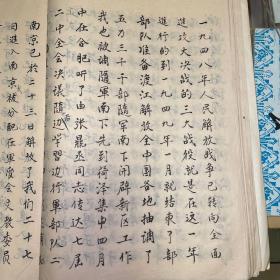 一九四八年人民解放战争已转向全面
进攻大决战的三大战役就是在这一年
进行的到一九四九年一月就结束了部
部队准备渡江解放全中国各地抽调了
五万三千干部随军南下开辟新区工作
我也被调随军南下先到荷泽集中四月
中在合肥听了由张鼎丞同志传达七届
二中全会决议随后边学习边行军部队二
南京已於二十三日解放了我们二十七
日进入南京被分配在军管会文教委员